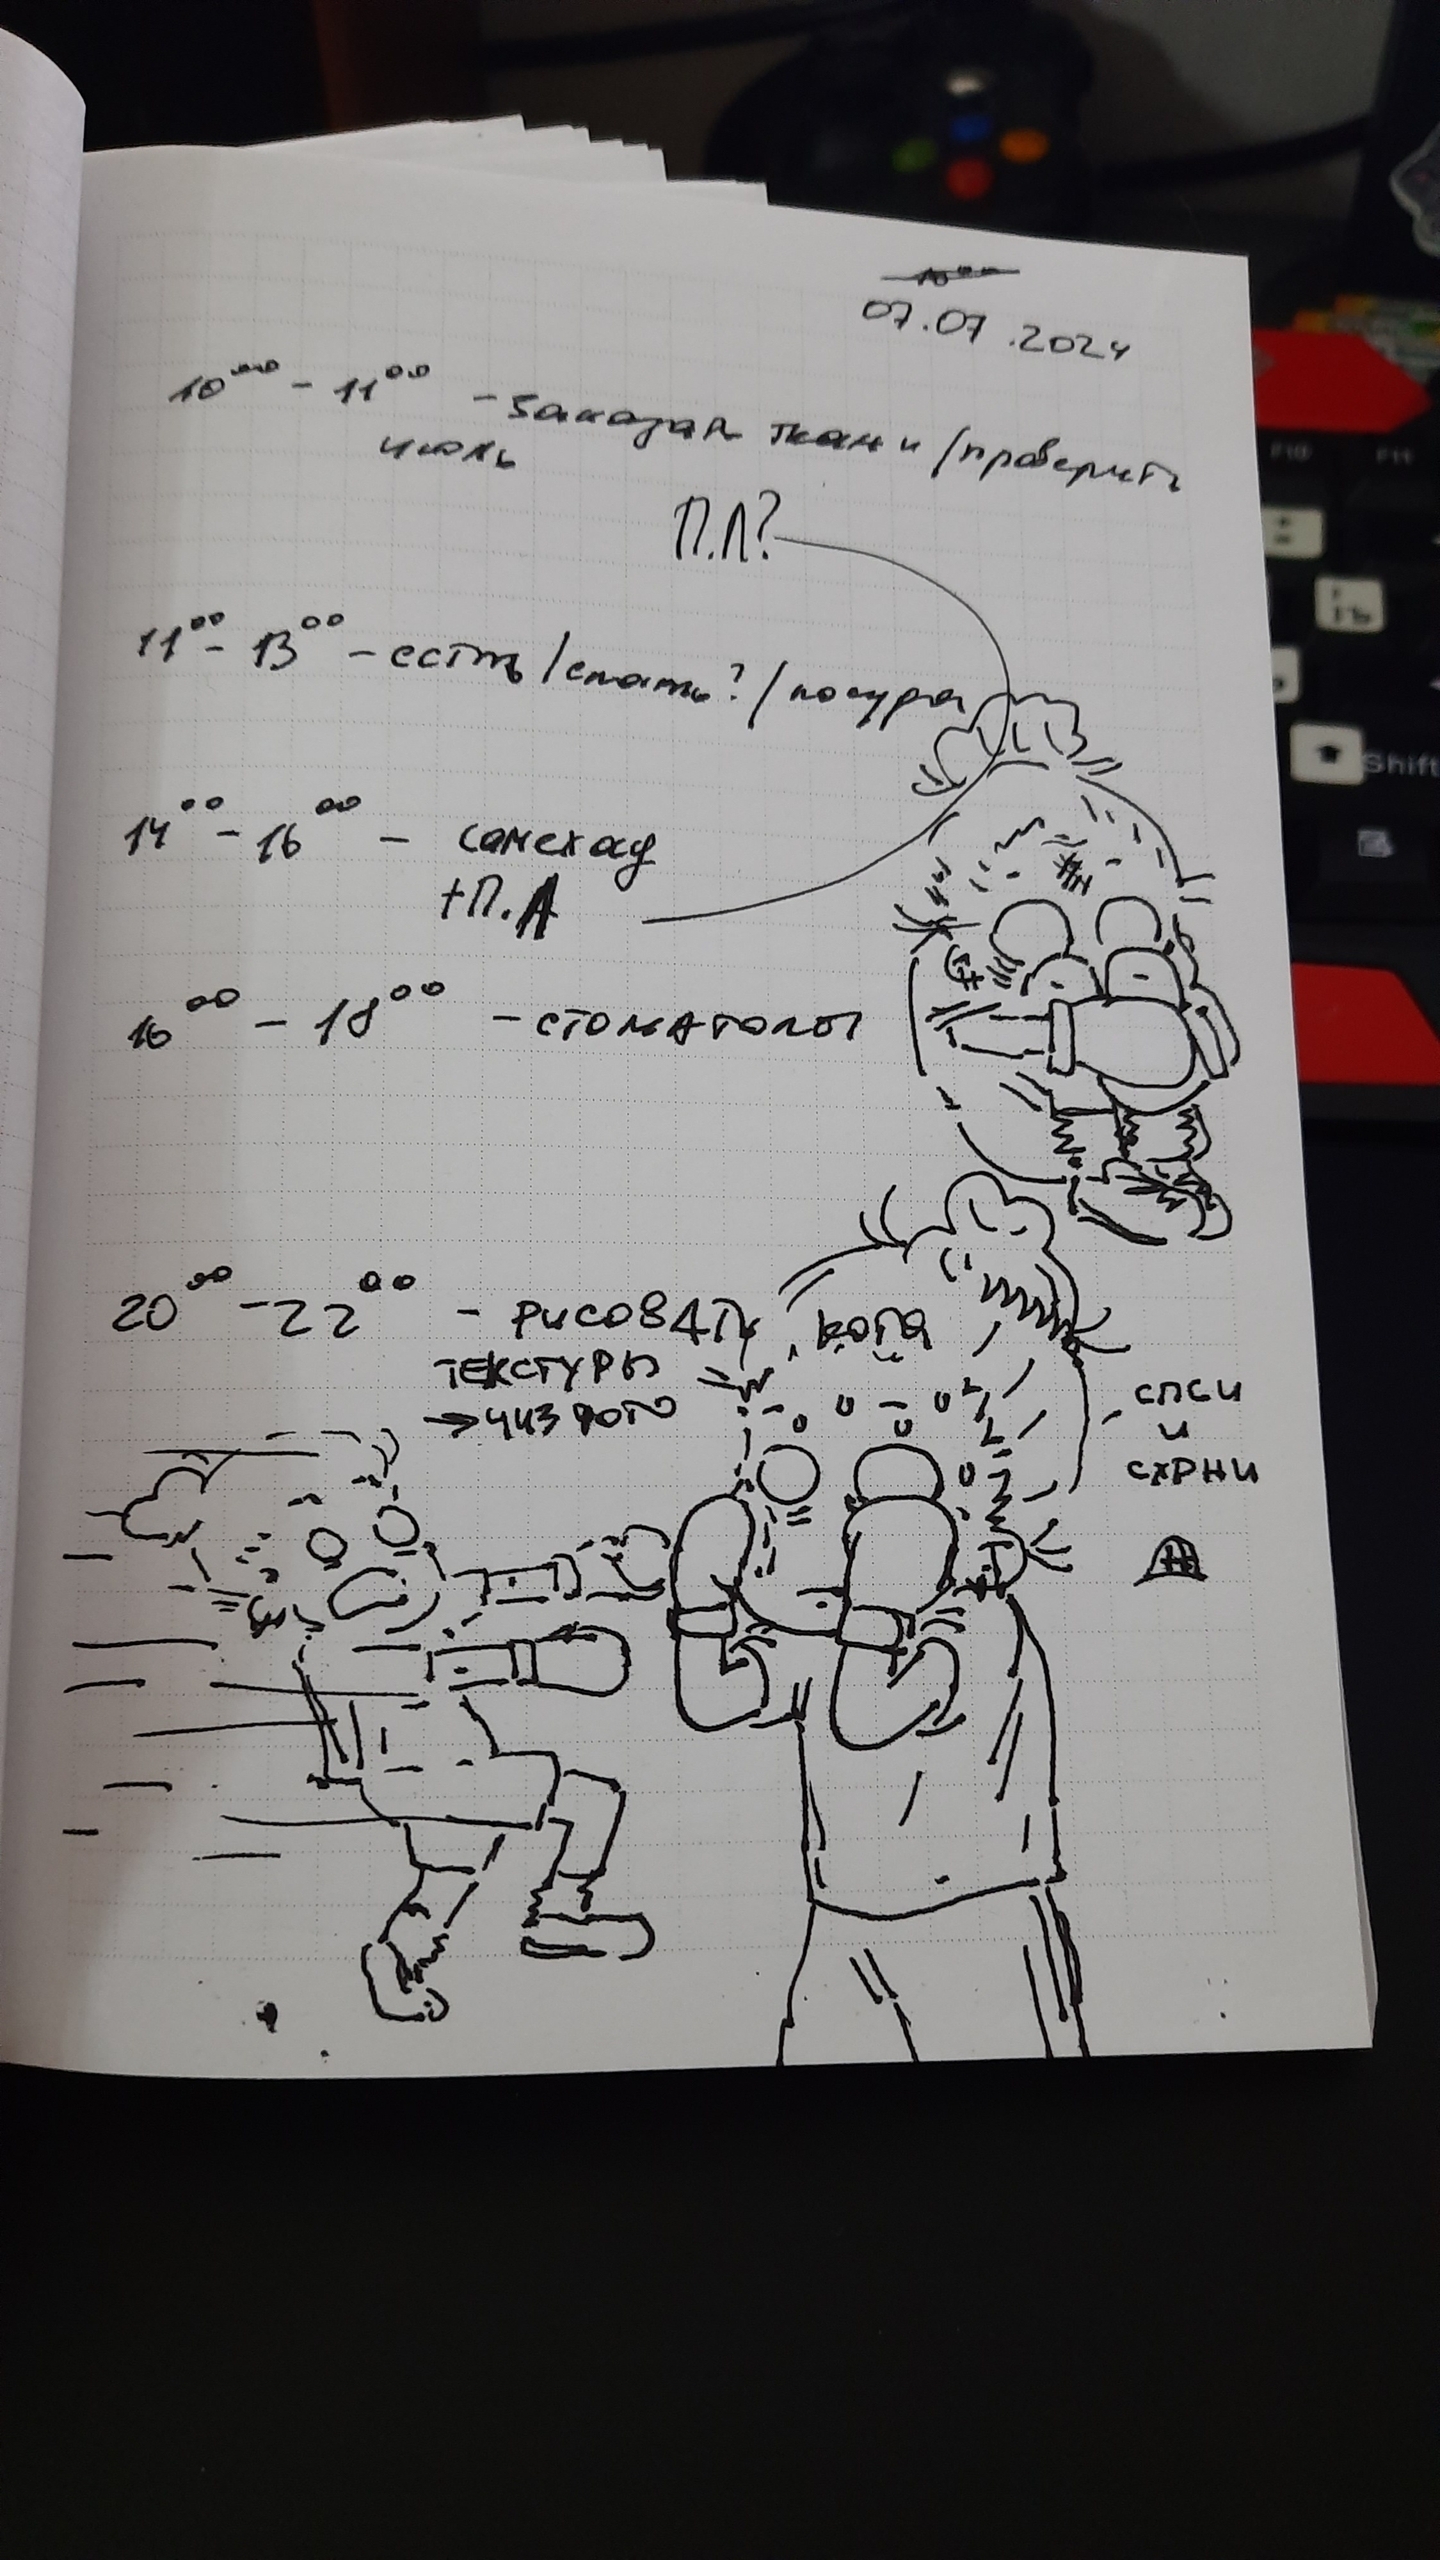 07.07.2024
10⁰⁰ - 11⁰⁰ - заказал ткани / проверить
июль
П.Л?
11⁰⁰ - 13⁰⁰ - есть / спать? / посуда
14⁰⁰ - 16⁰⁰ -
+П.А
16⁰⁰ - 18⁰⁰ - стоматолог
20⁰⁰ - 22⁰⁰ - рисовать кота
ТЕКСТУРЫ
→
СПСИ
И
СХРНИ
F10
F11
Shift